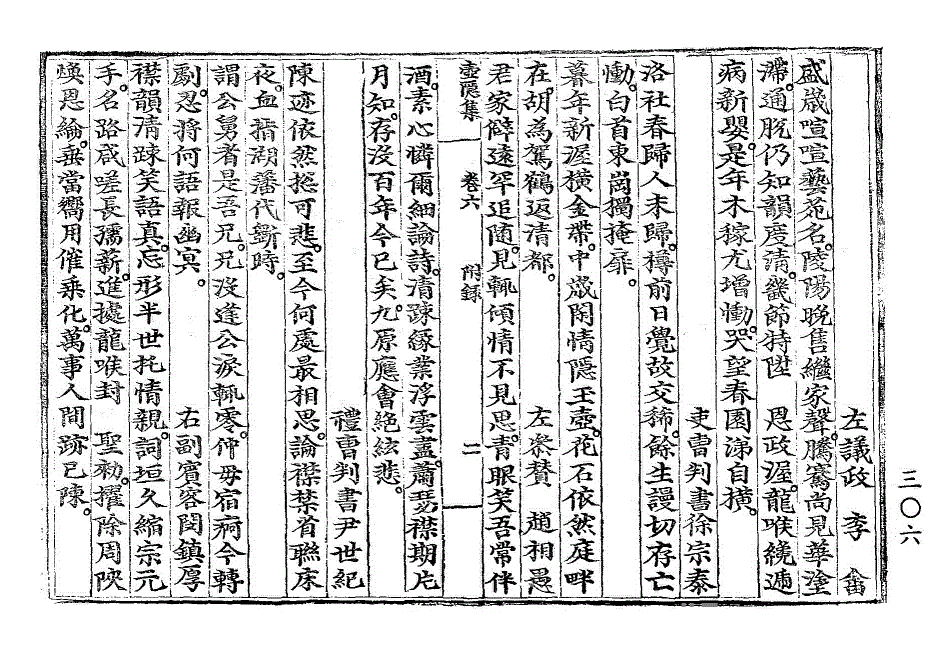 左議政 李 畬
盛歲喧喧藝苑名。陵陽晩售繼家聲。騰騫尚見華塗
滯。通脫仍知韻度淸。畿節持陞 恩政渥。龍喉纔遞
病新嬰。是年木稼尤增慟。哭望春園涕自橫。
吏曹判書徐宗泰
洛社春歸人未歸。樽前日覺故交稀。餘生謾切存亡
慟。白首東崗獨掩扉。
暮年新渥橫金帶。中歲閑情隱玉壺。花石依然庭畔
在。胡爲駕鶴返淸都。
左參贊 趙相愚
君家僻遠罕追隨。見輒傾情不見思。靑眼笑吾常伴
酒。素心憐爾細論詩。淸踈緣業浮雲盡。蕭瑟襟期片
月知。存沒百年今已矣。九原應會絶絃悲。
禮曹判書尹世紀
陳迹依然摠可悲。至今何處最相思。論襟禁省聯床
夜。血指湖藩代斲時。
謂公舅者是吾兄。兄沒逢公淚輒零。仲毋宿痾今轉
劇。忍將何語報幽冥。
右副賓客閔鎭厚
襟韻淸踈笑語眞。忘形半世托情親。詞垣久縮宗元
手。名路咸嗟長孺薪。進據龍喉封 聖勑。擢除周陜
煥恩綸。棄當嚮用催乘化。萬事人間跡已陳。
壺隱集 卷六 附錄 二
三〇六